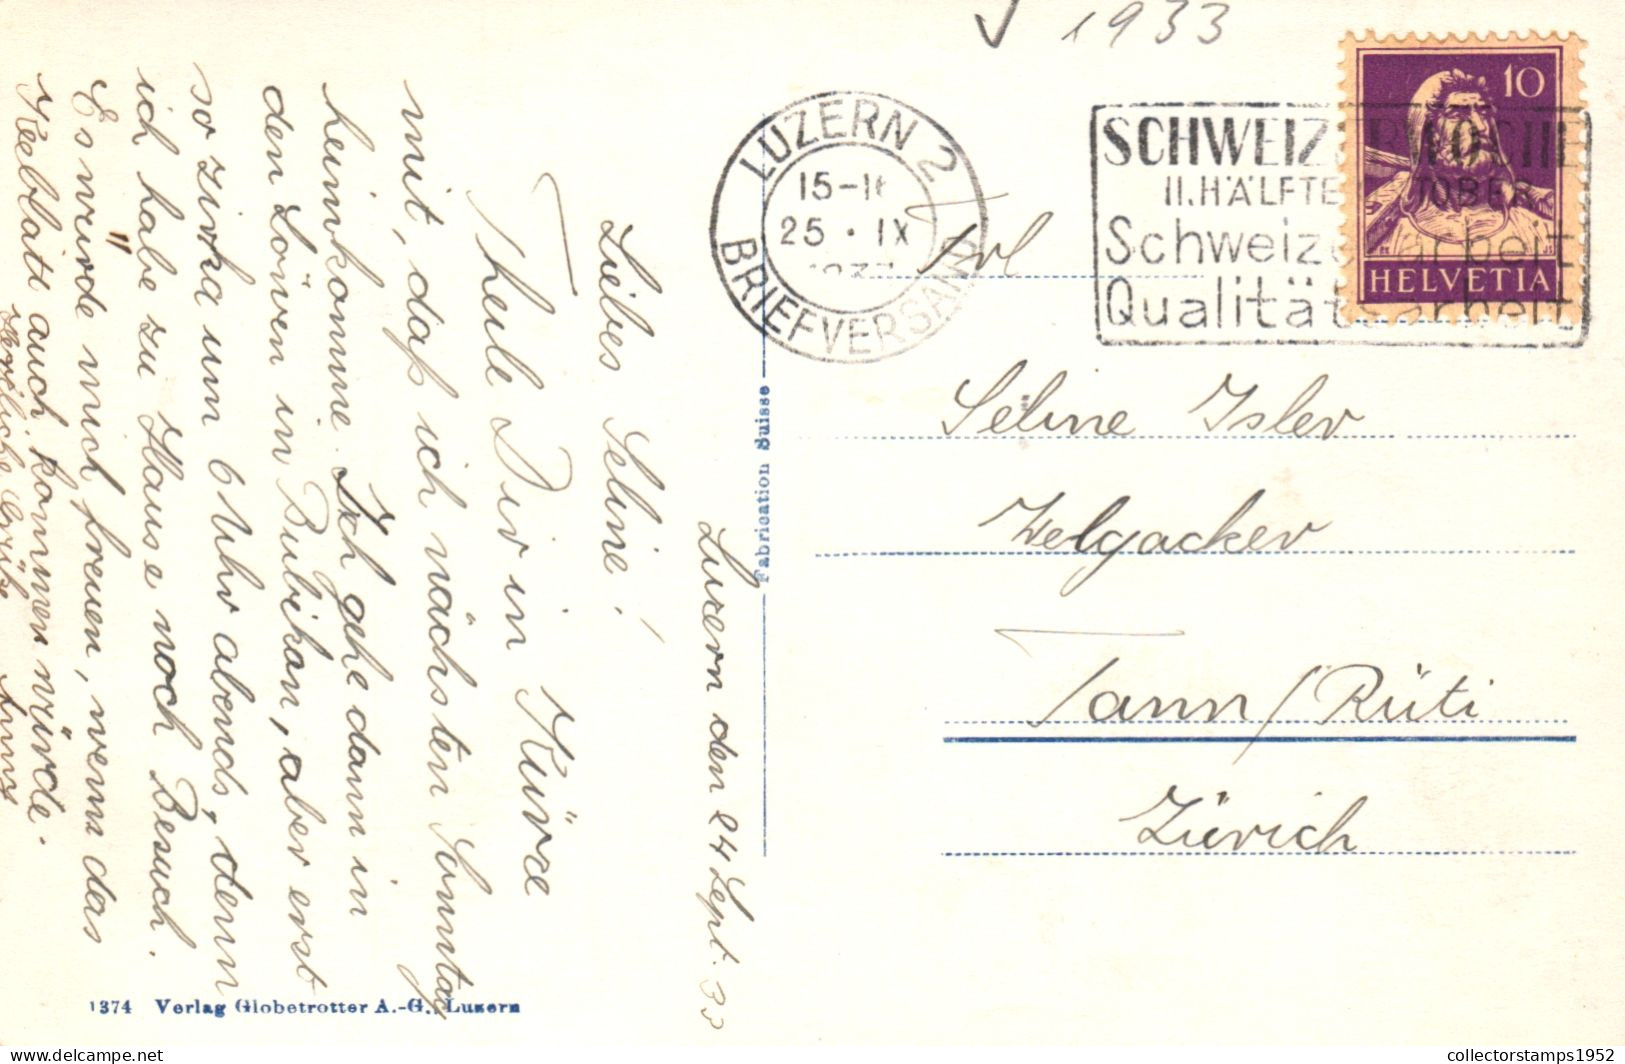 ✓ 1933
LUZERN 2
15-1
25 · IX
BRIEFVERSAND
SCHWEIZERWOCHE
II. HÄLFTE OKTOBER
Schweizerarbeit
Qualitätsarbeit
10
HELVETIA
Frl
Seline Isler
Welgacker
Tann/Rüti
Zürich
Fabrication Suisse
Luzern den 24 Sept. 33
Liebes Seline!
Theile Dir in Kürze
mit, daß ich nächsten Sonntag
heimkomme. Ich gehe dann in
den Löwen in Bubikon, aber erst
so zirka um 6 Uhr abends, denn
ich habe zu Hause noch Besuch.
Es würde mich freuen, wenn das
Kleeblatt auch kommen würde.
Herzliche Grüße
1374 Verlag Globetrotter A.-G., Luzern
collectorstamps1952